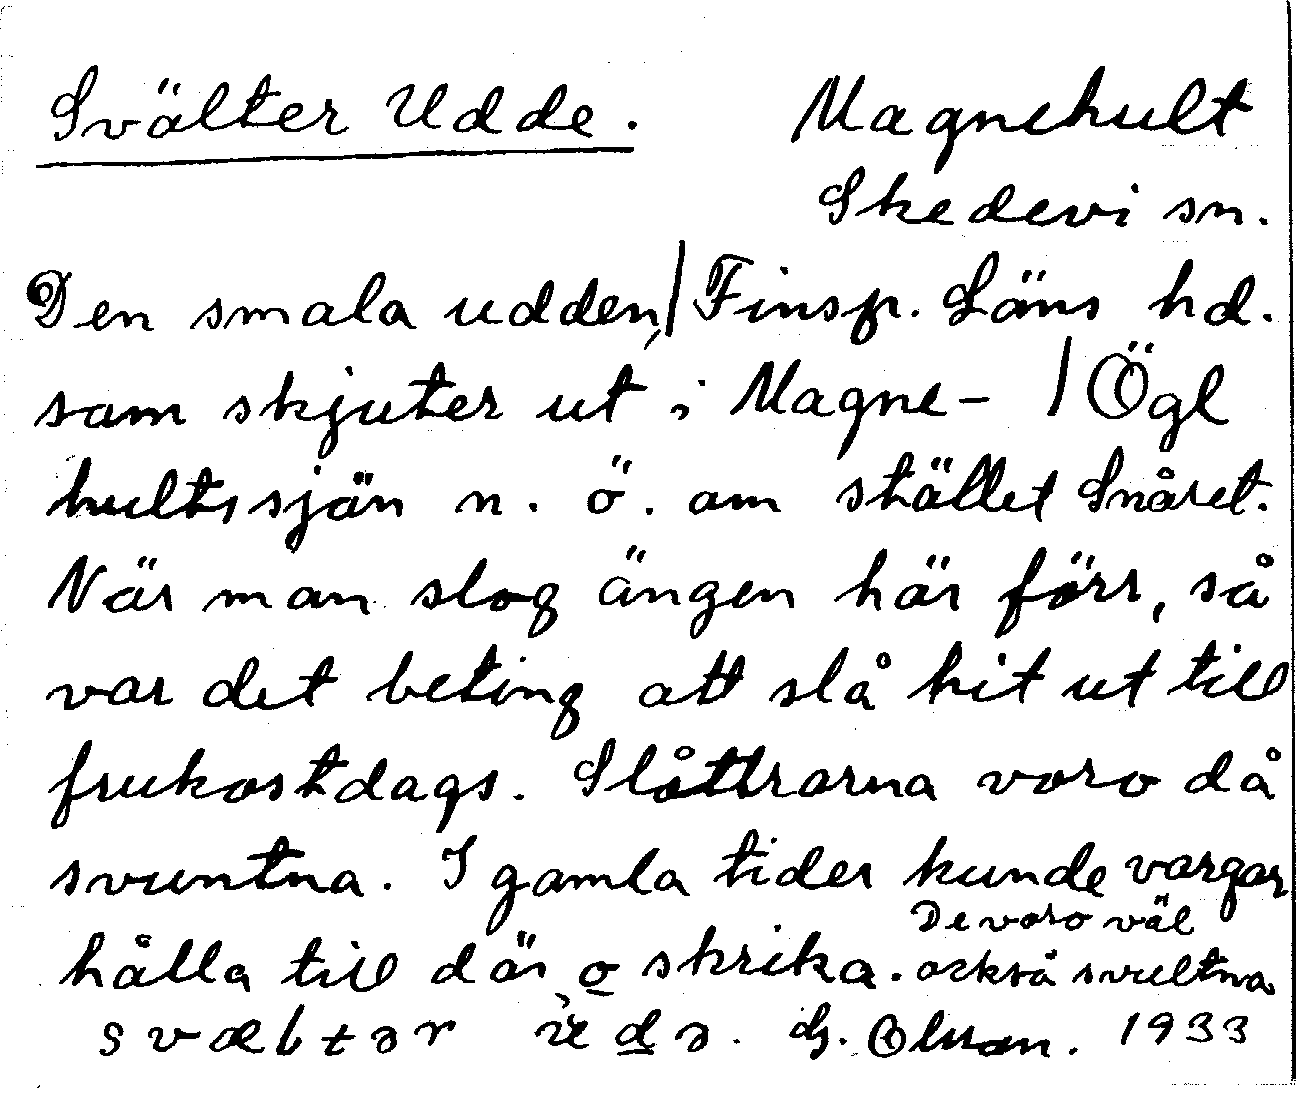 Svälter Udde. Magnehult
Skedevi sn.
Den smala udden, / Finsp. Läns hd.
som skjuter ut i Magne- / Ögl
hultssjön n. ö. om stället Snåret.
När man slog ängen här förr, så
var det beting att slå hit ut till
frukostdags. Slåttrarna voro då
svuntna. I gamla tider kunde vargar
hålla till där o skrika. De voro väl
också svultna
G. Olsson. 1933